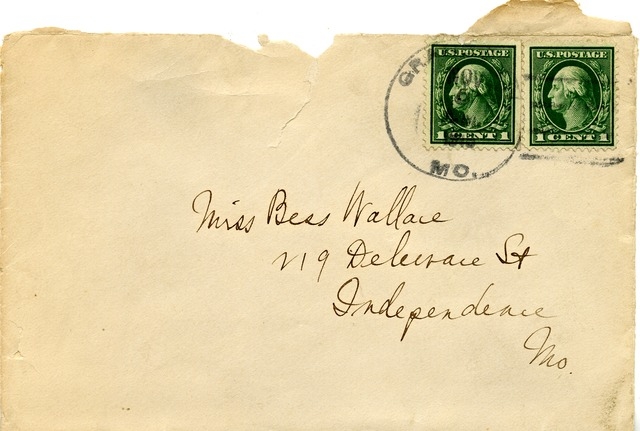 U.S. POSTAGE
1 CENT 1
U.S. POSTAGE
1 CENT 1
MO.
Miss Bess Wallace
219 Delaware St
Independence
Mo.